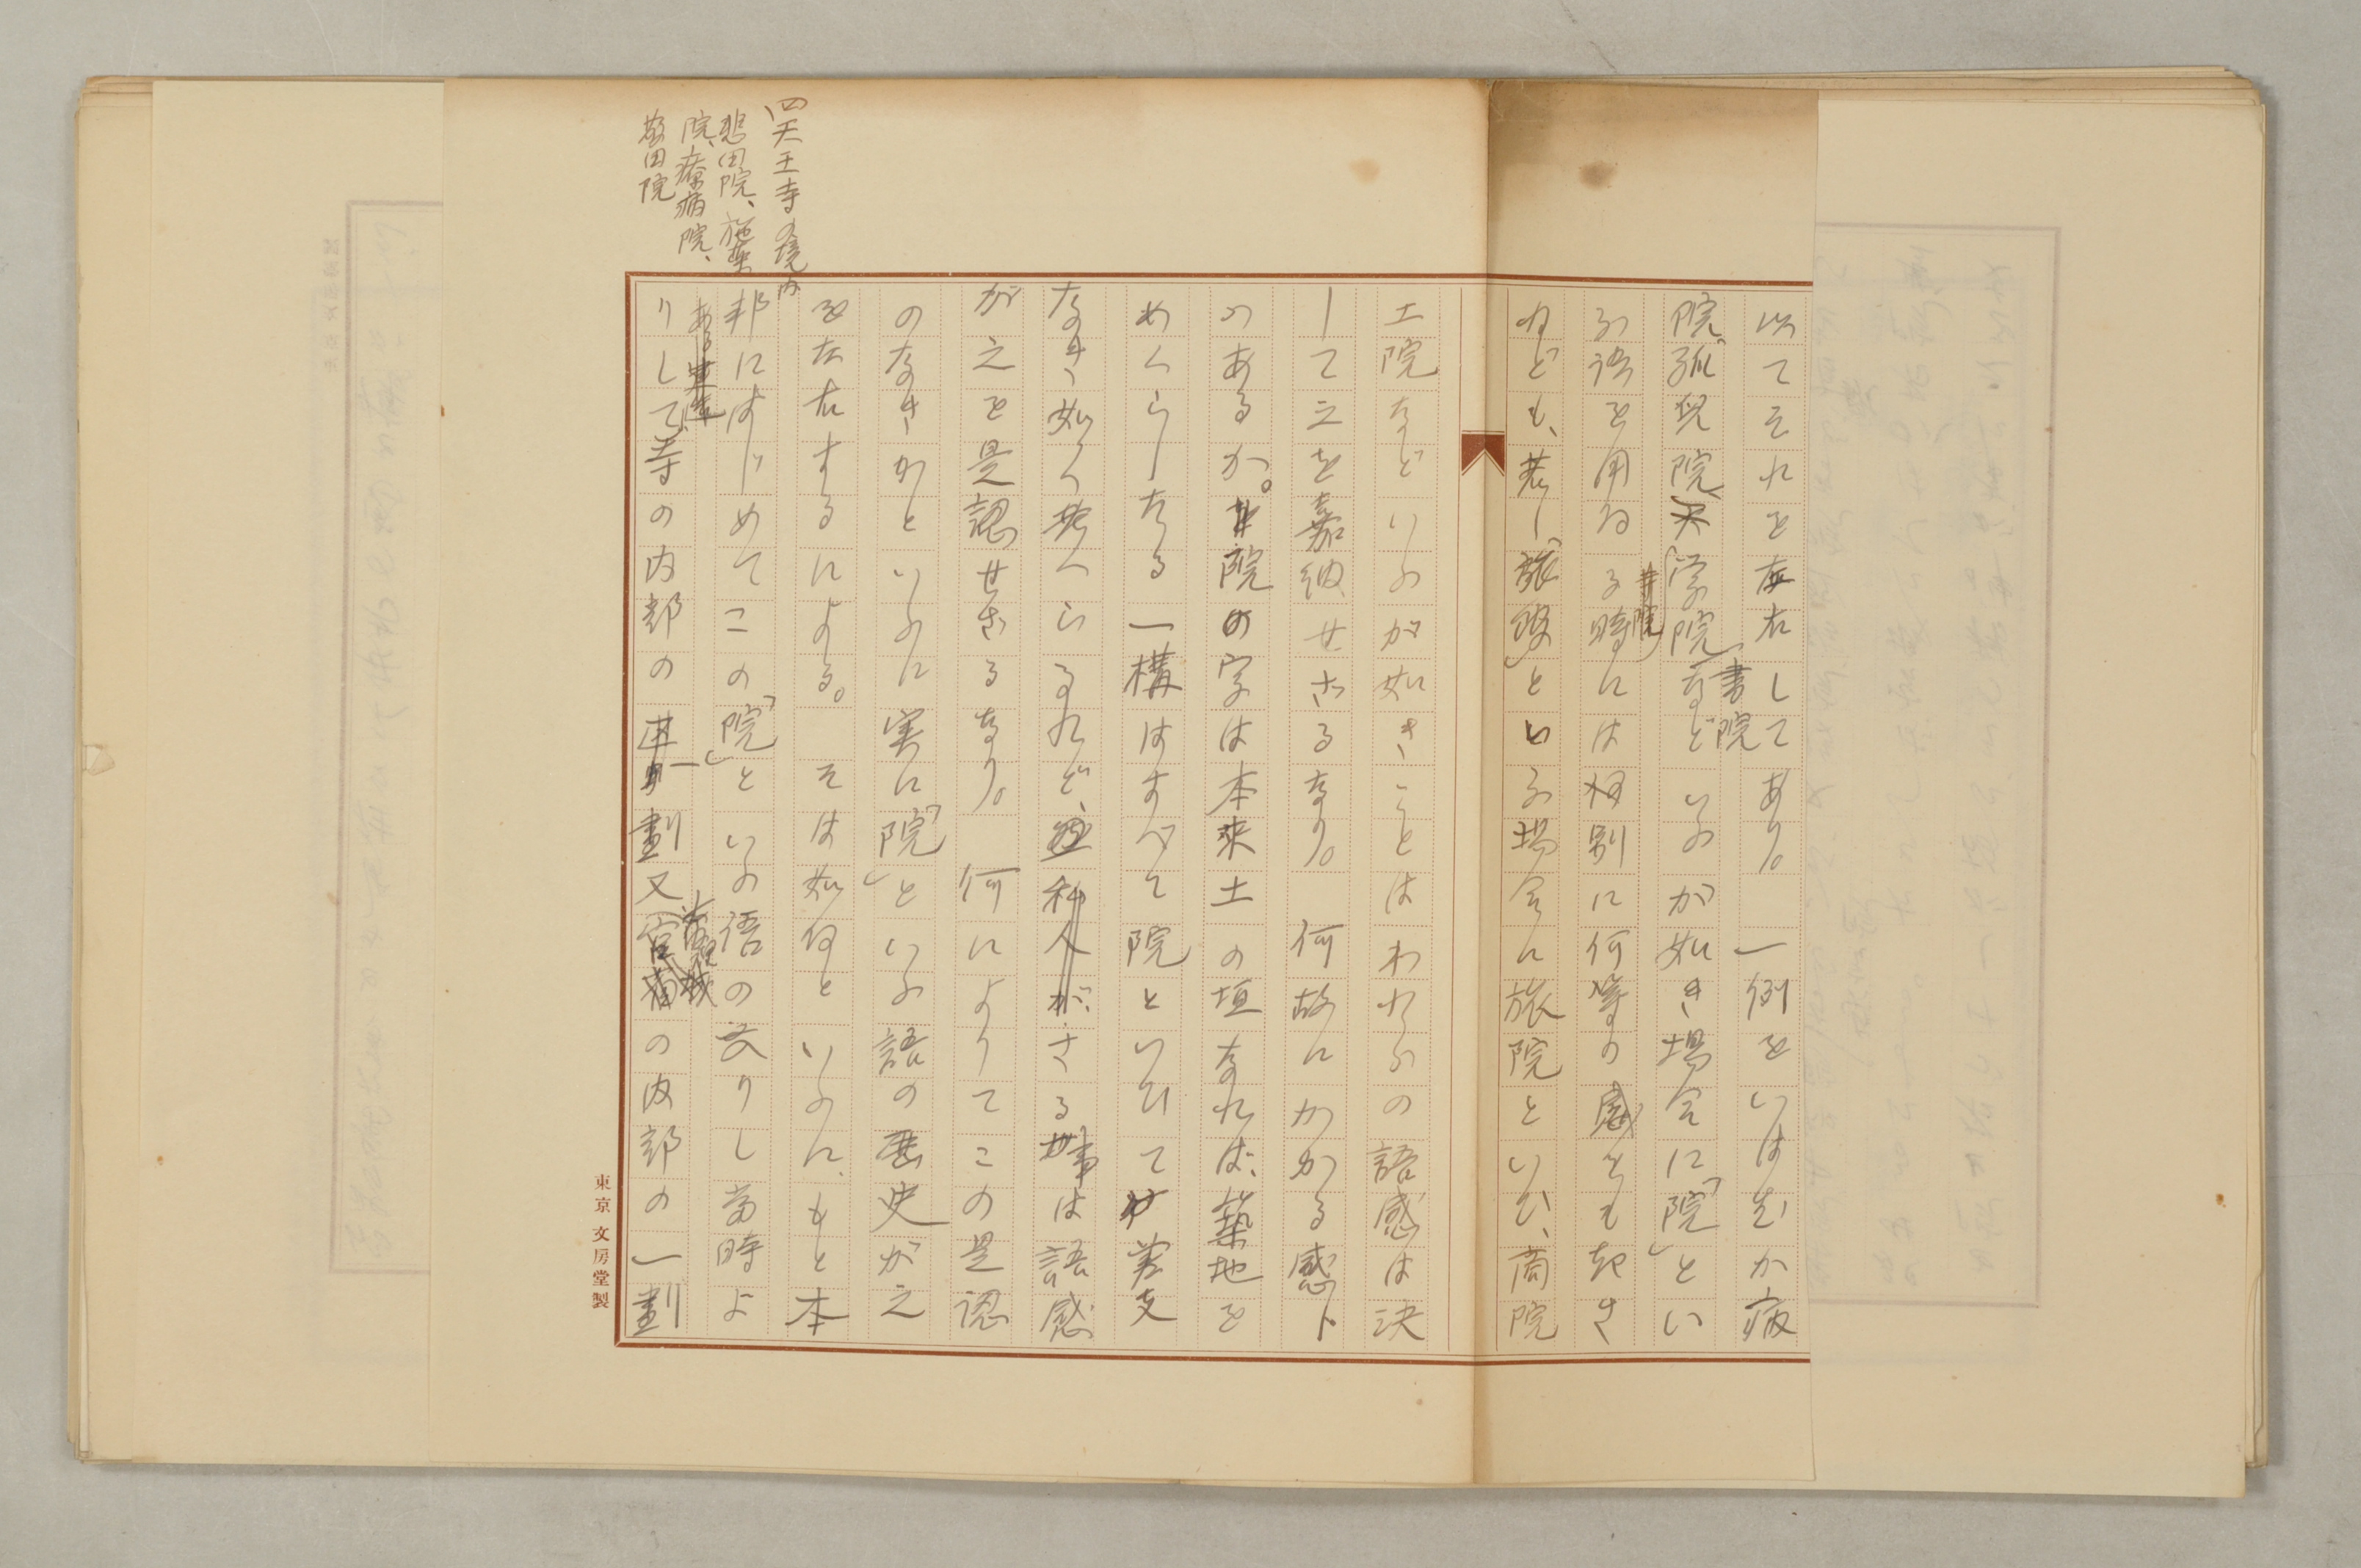 以てそれを左右してあり。一例をいはむか病
院、孤児院、学院、書院などいふが如き場合に「院」とい
ふ語を用ゐる時には格別に何等の感をも起さ
ねども、若し「旅館」といふ場合に旅院といひ、商院
工院などいふが如きことはわれらの語感は決
して之を嘉納せざるなり。何故にかかる感ト
のあるか。院の字は本来土の垣なれば、築地を
めぐらしたる一構はすべて院といひて差支
なき如く考へらるれど、さる事は語感
が之を是認せざるなり。何によりてこの是認
のなきかといふに実に「院」といふ語の歴史が之
を左右するによる。そは如何といふに、もと本
邦にはじめてこの「院」といふ語の入りし当時よ
りして、寺の内部の一劃又の内部の一劃
四天王寺の境内
悲田院、施薬
院、療病院、
敬田院
東京 文房堂製